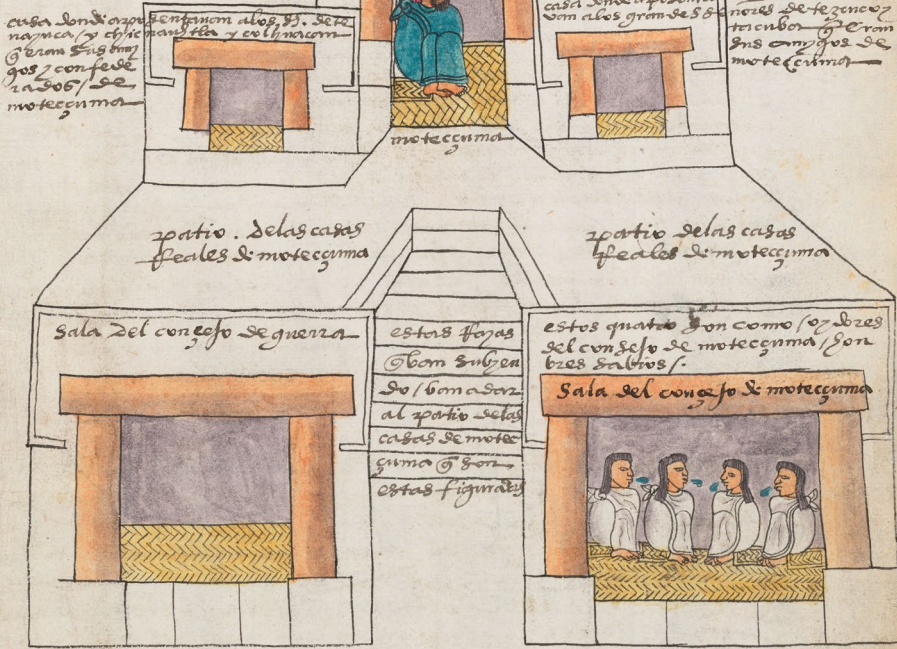 casa donde aposentavan a los s.s. de te
nayuca / y chicnauhtla y colhuacan
q̃ eran sus ami
gos y confede
rados / de
motecçuma
casa donde aposenta
van a los grandes se
ñores de tezcuco y
tacuba q̃ eran
sus amigos de
motecçuma
motecçuma
patio . de las casas
Reales de motecçuma
patio de las casas
Reales de motecçuma
sala del conçejo de guerra
estas Rayas
q̃ van subyen
do / van a dar
al patio de las
casas de motec
çuma q̃ son
estas figuradas
estos quatro son como / oydores
del consejo de motecçuma / hon
bres sabios /.
sala del conçejo de motecçuma